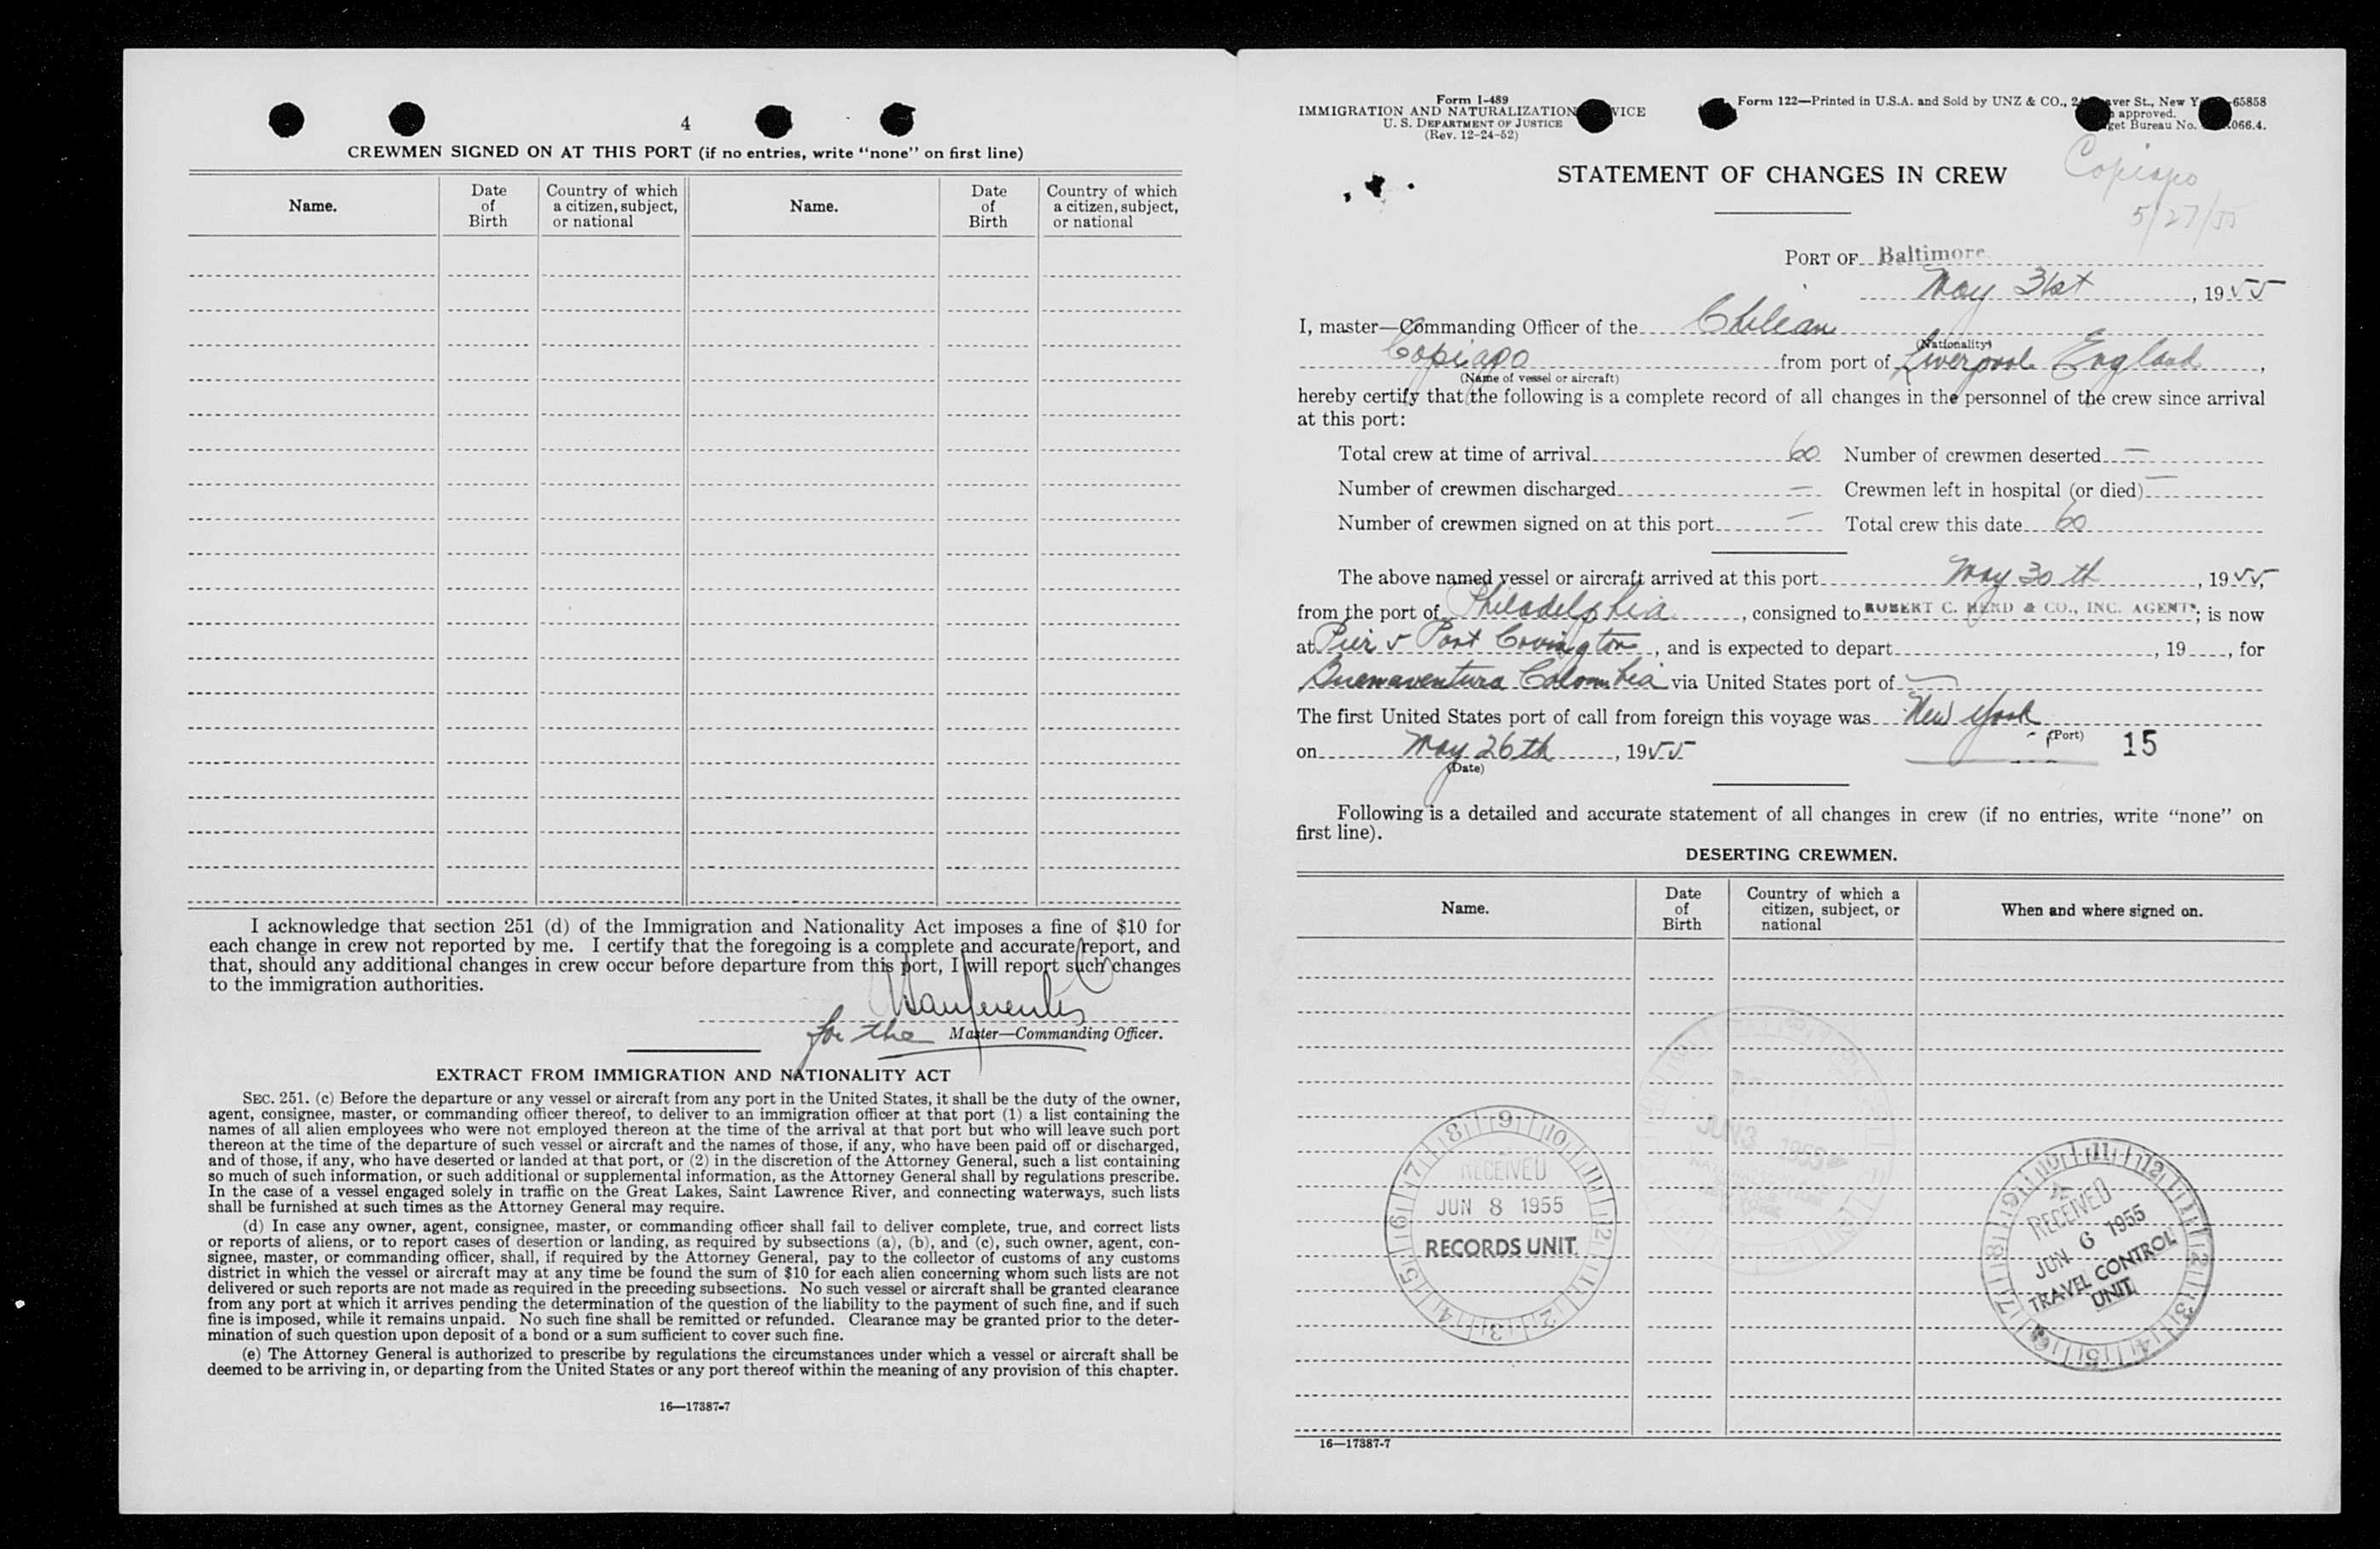 4
CREWMEN SIGNED ON AT THIS PORT (if no entries, write "none" on first line)
Name.
Date
of
Birth
Country of which
a citizen, subject,
or national
Name.
Date
of
Birth
Country of which
a citizen, subject,
or national
I acknowledge that section 251 (d) of the Immigration and Nationality Act imposes a fine of $10 for
each change in crew not reported by me. I certify that the foregoing is a complete and accurate report, and
that, should any additional changes in crew occur before departure from this port, I will report such changes
to the immigration authorities.
for the Master—Commanding Officer.
EXTRACT FROM IMMIGRATION AND NATIONALITY ACT
SEC. 251. (c) Before the departure or any vessel or aircraft from any port in the United States, it shall be the duty of the owner,
agent, consignee, master, or commanding officer thereof, to deliver to an immigration officer at that port (1) a list containing the
names of all alien employees who were not employed thereon at the time of the arrival at that port but who will leave such port
thereon at the time of the departure of such vessel or aircraft and the names of those, if any, who have been paid off or discharged,
and of those, if any, who have deserted or landed at that port, or (2) in the discretion of the Attorney General, such a list containing
so much of such information, or such additional or supplemental information, as the Attorney General shall by regulations prescribe.
In the case of a vessel engaged solely in traffic on the Great Lakes, Saint Lawrence River, and connecting waterways, such lists
shall be furnished at such times as the Attorney General may require.
(d) In case any owner, agent, consignee, master, or commanding officer shall fail to deliver complete, true, and correct lists
or reports of aliens, or to report cases of desertion or landing, as required by subsections (a), (b), and (c), such owner, agent, con-
signee, master, or commanding officer, shall, if required by the Attorney General, pay to the collector of customs of any customs
district in which the vessel or aircraft may at any time be found the sum of $10 for each alien concerning whom such lists are not
delivered or such reports are not made as required in the preceding subsections. No such vessel or aircraft shall be granted clearance
from any port at which it arrives pending the determination of the question of the liability to the payment of such fine, and if such
fine is imposed, while it remains unpaid. No such fine shall be remitted or refunded. Clearance may be granted prior to the deter-
mination of such question upon deposit of a bond or a sum sufficient to cover such fine.
(e) The Attorney General is authorized to prescribe by regulations the circumstances under which a vessel or aircraft shall be
deemed to be arriving in, or departing from the United States or any port thereof within the meaning of any provision of this chapter.
16—17387-7
Form I-489
IMMIGRATION AND NATURALIZATION VICE
U. S. DEPARTMENT OF JUSTICE
(Rev. 12-24-52)
Form 122—Printed in U.S.A. and Sold by UNZ & CO., 2 aver St., New Y 65858
approved.
get Bureau No. .066.4.
Copiapo
5/27/55
STATEMENT OF CHANGES IN CREW
PORT OF Baltimore
May 31st, 1955
I, master—Commanding Officer of the Chilean
(Nationality)
Copiapo from port of Liverpool England,
(Name of vessel or aircraft)
hereby certify that the following is a complete record of all changes in the personnel of the crew since arrival
at this port:
Total crew at time of arrival 60 Number of crewmen deserted —
Number of crewmen discharged — Crewmen left in hospital (or died) —
Number of crewmen signed on at this port — Total crew this date 60
The above named vessel or aircraft arrived at this port May 30th, 1955,
from the port of Philadelphia, consigned to ROBERT C. HERD & CO., INC. AGENTS; is now
at Pier 5 Port Covington, and is expected to depart , 19 , for
Buenaventura Colombia via United States port of —
The first United States port of call from foreign this voyage was New York
(Port)
on May 26th, 1955
(Date)
15
Following is a detailed and accurate statement of all changes in crew (if no entries, write "none" on
first line).
DESERTING CREWMEN.
Name.
Date
of
Birth
Country of which a
citizen, subject, or
national
When and where signed on.
JUN 3 1955
9 10 11 12 1 2 3 4 5 6 7 8
RECEIVED
JUN 8 1955
RECORDS UNIT
10 11 12 1 2 3 4 5 6 7 8 9
RECEIVED
JUN 6 1955
TRAVEL CONTROL
UNIT
16—17387-7